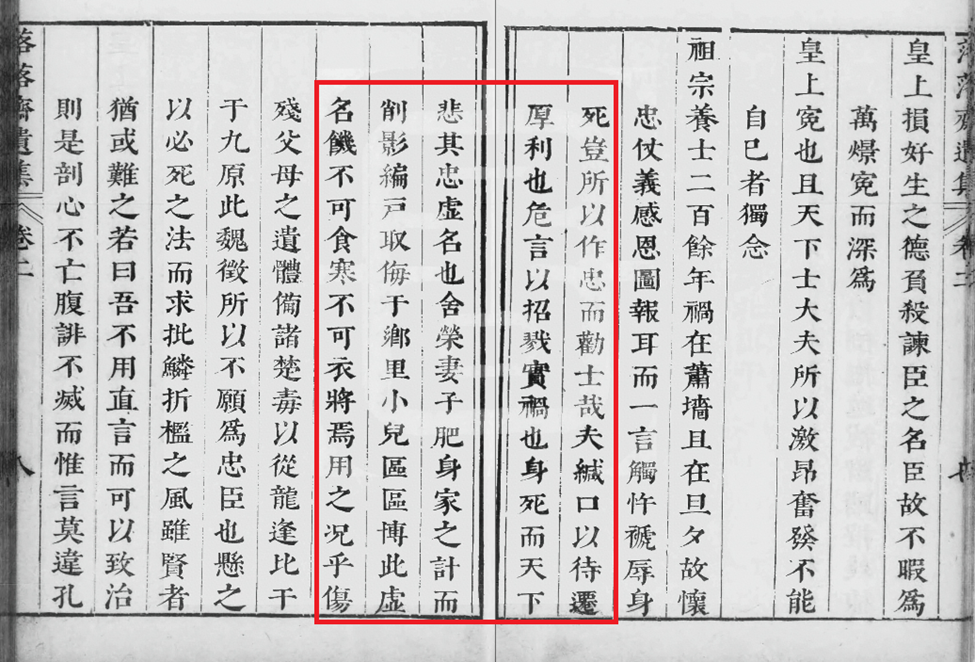 落落齋遺集 卷二
皇上損好生之德負殺諫臣之名臣故不暇爲
萬燝寃而深爲
皇上寃也且天下士大夫所以激昂奮發不能
自已者獨念
祖宗養士二百餘年禍在蕭墻且在旦夕故懷
忠仗義感恩圖報耳而一言觸忤褫辱身
死豈所以作忠而勸士哉夫緘口以待遷
厚利也危言以招戮實禍也身死而天下
悲其忠虛名也舍榮妻子肥身家之計而
削影編戸取侮于鄉里小兒區區博此虛
名饑不可食寒不可衣將焉用之况乎傷
殘父母之遺體備諸楚毒以從龍逢比干
于九原此魏徵所以不願爲忠臣也懸之
以必死之法而求批鱗折檻之風雖賢者
猶或難之若曰吾不用直言而可以致治
則是剖心不亡腹誹不滅而惟言莫違孔
落落齋遺集 卷二 八